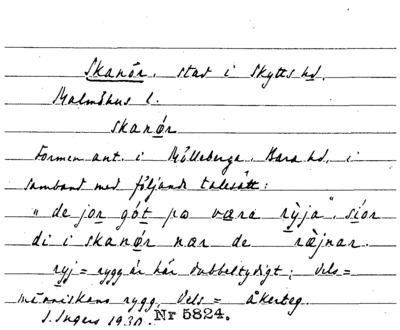 Skanör, stad i Skytts hd,
Malmöhus l.
skanǿr
Formen ant. i Mölleberga, Bara hd, i
samband med följande talesätt:
"de jor gót pa væra rỳja", síor
di i skanǿr nær de ræ̀jnar.
ryj = rygg är här dubbeltydigt; dels =
människans rygg, dels = åkerteg.
I. Ingers 1930. Nr 5824.